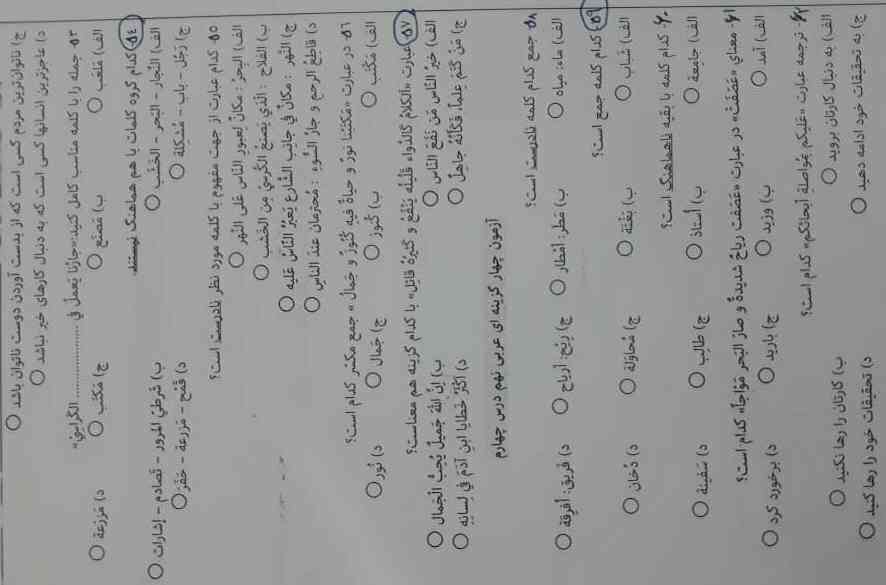 ج) ناتوان‌ترین مردم کسی است که از بدست آوردن دوست ناتوان باشد
د) عاجزترین انسانها کسی است که به دنبال کارهای خیر نباشد
۵۳- جمله را با کلمه مناسب کامل کنید: «جارُنا یَعمَلُ فی .................. الکَراسیّ»
الف) مَلعَب ب) مَصنَع ج) مَکتَب د) مَزرَعة
۵۴- کدام گروه کلمات با هم هماهنگ نیستند
الف) النَّجار - البَحر - الخَشَب ب) شُرطیُّ المُرور - تَصادُم - إشارات
ج) رَجُل - باب - مُشکِلَة د) قَمح - مَزرعة - حَفر
۵۵- کدام عبارت از جهت مفهوم با کلمه مورد نظر نادرست است؟
الف) البَحرُ : مکانٌ لِعبورِ النّاس عَلی النَّهر
ب) الفَلاح : الَّذی یَصنَعُ الکُرسیَّ مِن الخَشَب
ج) النَّهر : مکانٌ فی جانبِ الشّارع یَعبُرُ النّاسُ عَلَیه
د) قاطِعُ الرحمِ و جارُ السُّوءِ : مُحتَرمانِ عندَ الناسِ
۵۶- در عبارت «مَکتَبَتُنا نورٌ و حیاةٌ فیه کُنوزٌ و جَمالٌ» جمع مکسر کدام است؟
الف) مَکتَب ب) کُنوز ج) جَمال د) نُور
۵۷- عبارت «الکَلامُ کَالدَّواء قَلیلُهُ یَنفَعُ و کثیرُهُ قاتِل» با کدام گزینه هم معناست؟
الف) خیرُ النّاس مَن نَفَعَ النّاس ب) إنَّ اللهَ جَمیلٌ یُحِبُّ الجَمال
ج) مَن کَتَمَ عِلماً فَکَأنَّهُ جاهِلٌ د) أکثَرُ خَطایا ابنِ آدَمَ فی لِسانِهِ
آزمون چهار گزینه ای عربی نهم درس چهارم
۵۸- جمع کدام کلمه نادرست است؟
الف) ماء: میاه ب) مَطَر: أمطار ج) رِیح: أریاح د) فَریق: أفرِقَة
۵۹- کدام کلمه جمع است؟
الف) شَباب ب) بَغتَة ج) مُحاوَلَة د) دُخان
۶۰- کدام کلمه با بقیه ناهماهنگ است؟
الف) جامِعَة ب) أُستاذ ج) طالِب د) سَفینَة
۶۱- معنای «عَصَفَت» در عبارت «عَصَفَت ریاحٌ شَدیدةٌ و صارَ البَحر مَوّاجاً» کدام است؟
الف) آمد ب) وزید ج) بارید د) برخورد کرد
۶۲- ترجمه عبارت «عَلَیکُم بِمُواصَلَةِ أبحاثِکُم» کدام است؟
الف) به دنبال کارتان بروید ب) کارتان را رها نکنید
ج) به تحقیقات خود ادامه دهید د) تحقیقات خود را رها کنید